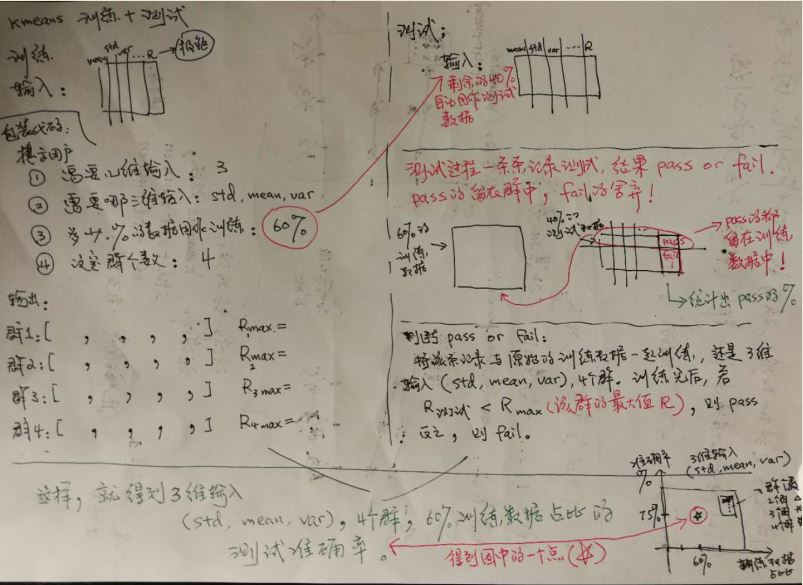 kmeans 训练+测试
训练
输入：
mean std var ... R
包装代码：
提示用户
① 需要几维输入： 3
② 需要哪三维输入： std, mean, var
③ 多少%的数据用作训练： 60%
④ 设定群个数： 4
输出：
群1:[ , , , , ] R1max =
群2:[ , , , , ] R2max =
群3:[ , , , , ] R3max =
群4:[ , , , , ] R4max =
测试：
输入：
mean std var ... R
剩余的40%
自动用作测试
数据
测试过程一条条记录测试，结果 pass or fail.
pass的留在群中，fail的舍弃！
60%的
训练
数据
40%的
测试数据
pass
fail
pass的都
留在训练
数据中！
统计出pass的%
判断 pass or fail:
将该条记录与原始的训练数据一起训练，还是3维
输入 (std, mean, var), 4个群。训练完后，若
R测试 < Rmax (该群的最大值R)，则 pass
反之，则 fail。
这样，就得到3维输入
(std, mean, var), 4个群，60%训练数据占比的
测试准确率。
得到图中的一个点(☆)
准确率
%
3维输入
(std, mean, var)
75%
60%
训练数据
占比
群个数
2个
3个
4个